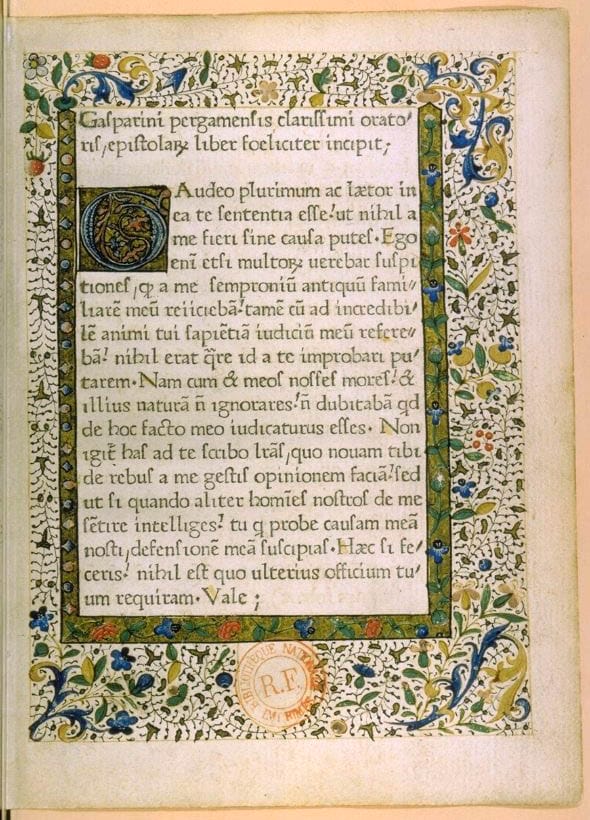 Gasparini pergamensis clarissimi orato/
ris, epistolaꝝ liber foeliciter incipit;
GAudeo plurimum ac lætor in
ea te sententia esse: ut nihil a
me fieri sine causa putes. Ego
eni etsi multoꝝ uerebar suspi
tiones, ꝙ a me semproniū antiquū fami/
liarē meū reiiciebā: tamē cū ad incredibi
lē animi tui sapiētiā iudiciū meū refere/
bā: nihil erat q̄re id a te improbari pu/
tarem. Nam cum & meos nosses mores: &
illius naturā n̄ ignorares: n̄ dubitabā qd
de hoc facto meo iudicaturus esses. Non
igit̄ has ad te scribo lr̄as, quo nouam tibi
de rebus a me gestis opinionem faciā: sed
ut si quando aliter homīes nostros de me
sētire intelliges: tu q probe causam meā
nosti, defensionē meā suscipias. Hæc si fe/
ceris: nihil est quo ulterius officium tu/
um requiram. Vale;
BIBLIOTHEQUE NATIONALE
R.F.
IMPRIMES